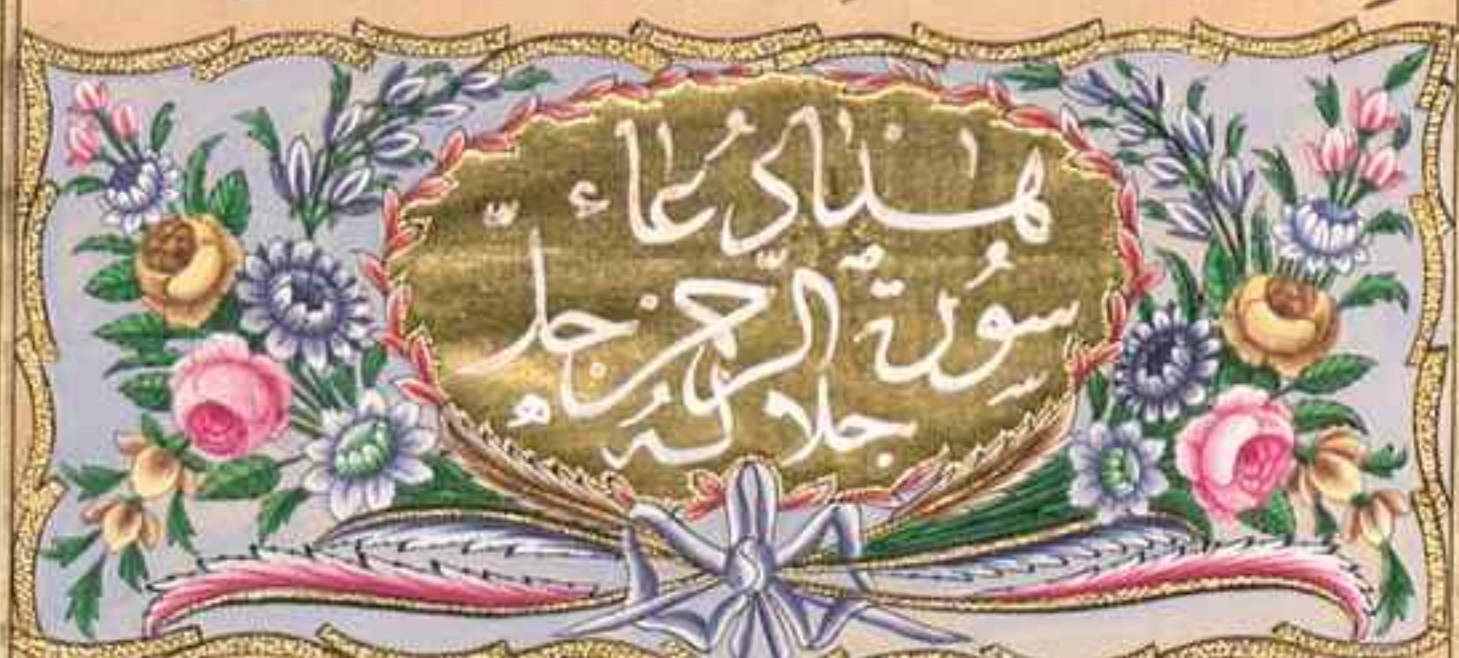 هٰذا دُعَاء
سُورة الرّحمن جلّ
جلاله